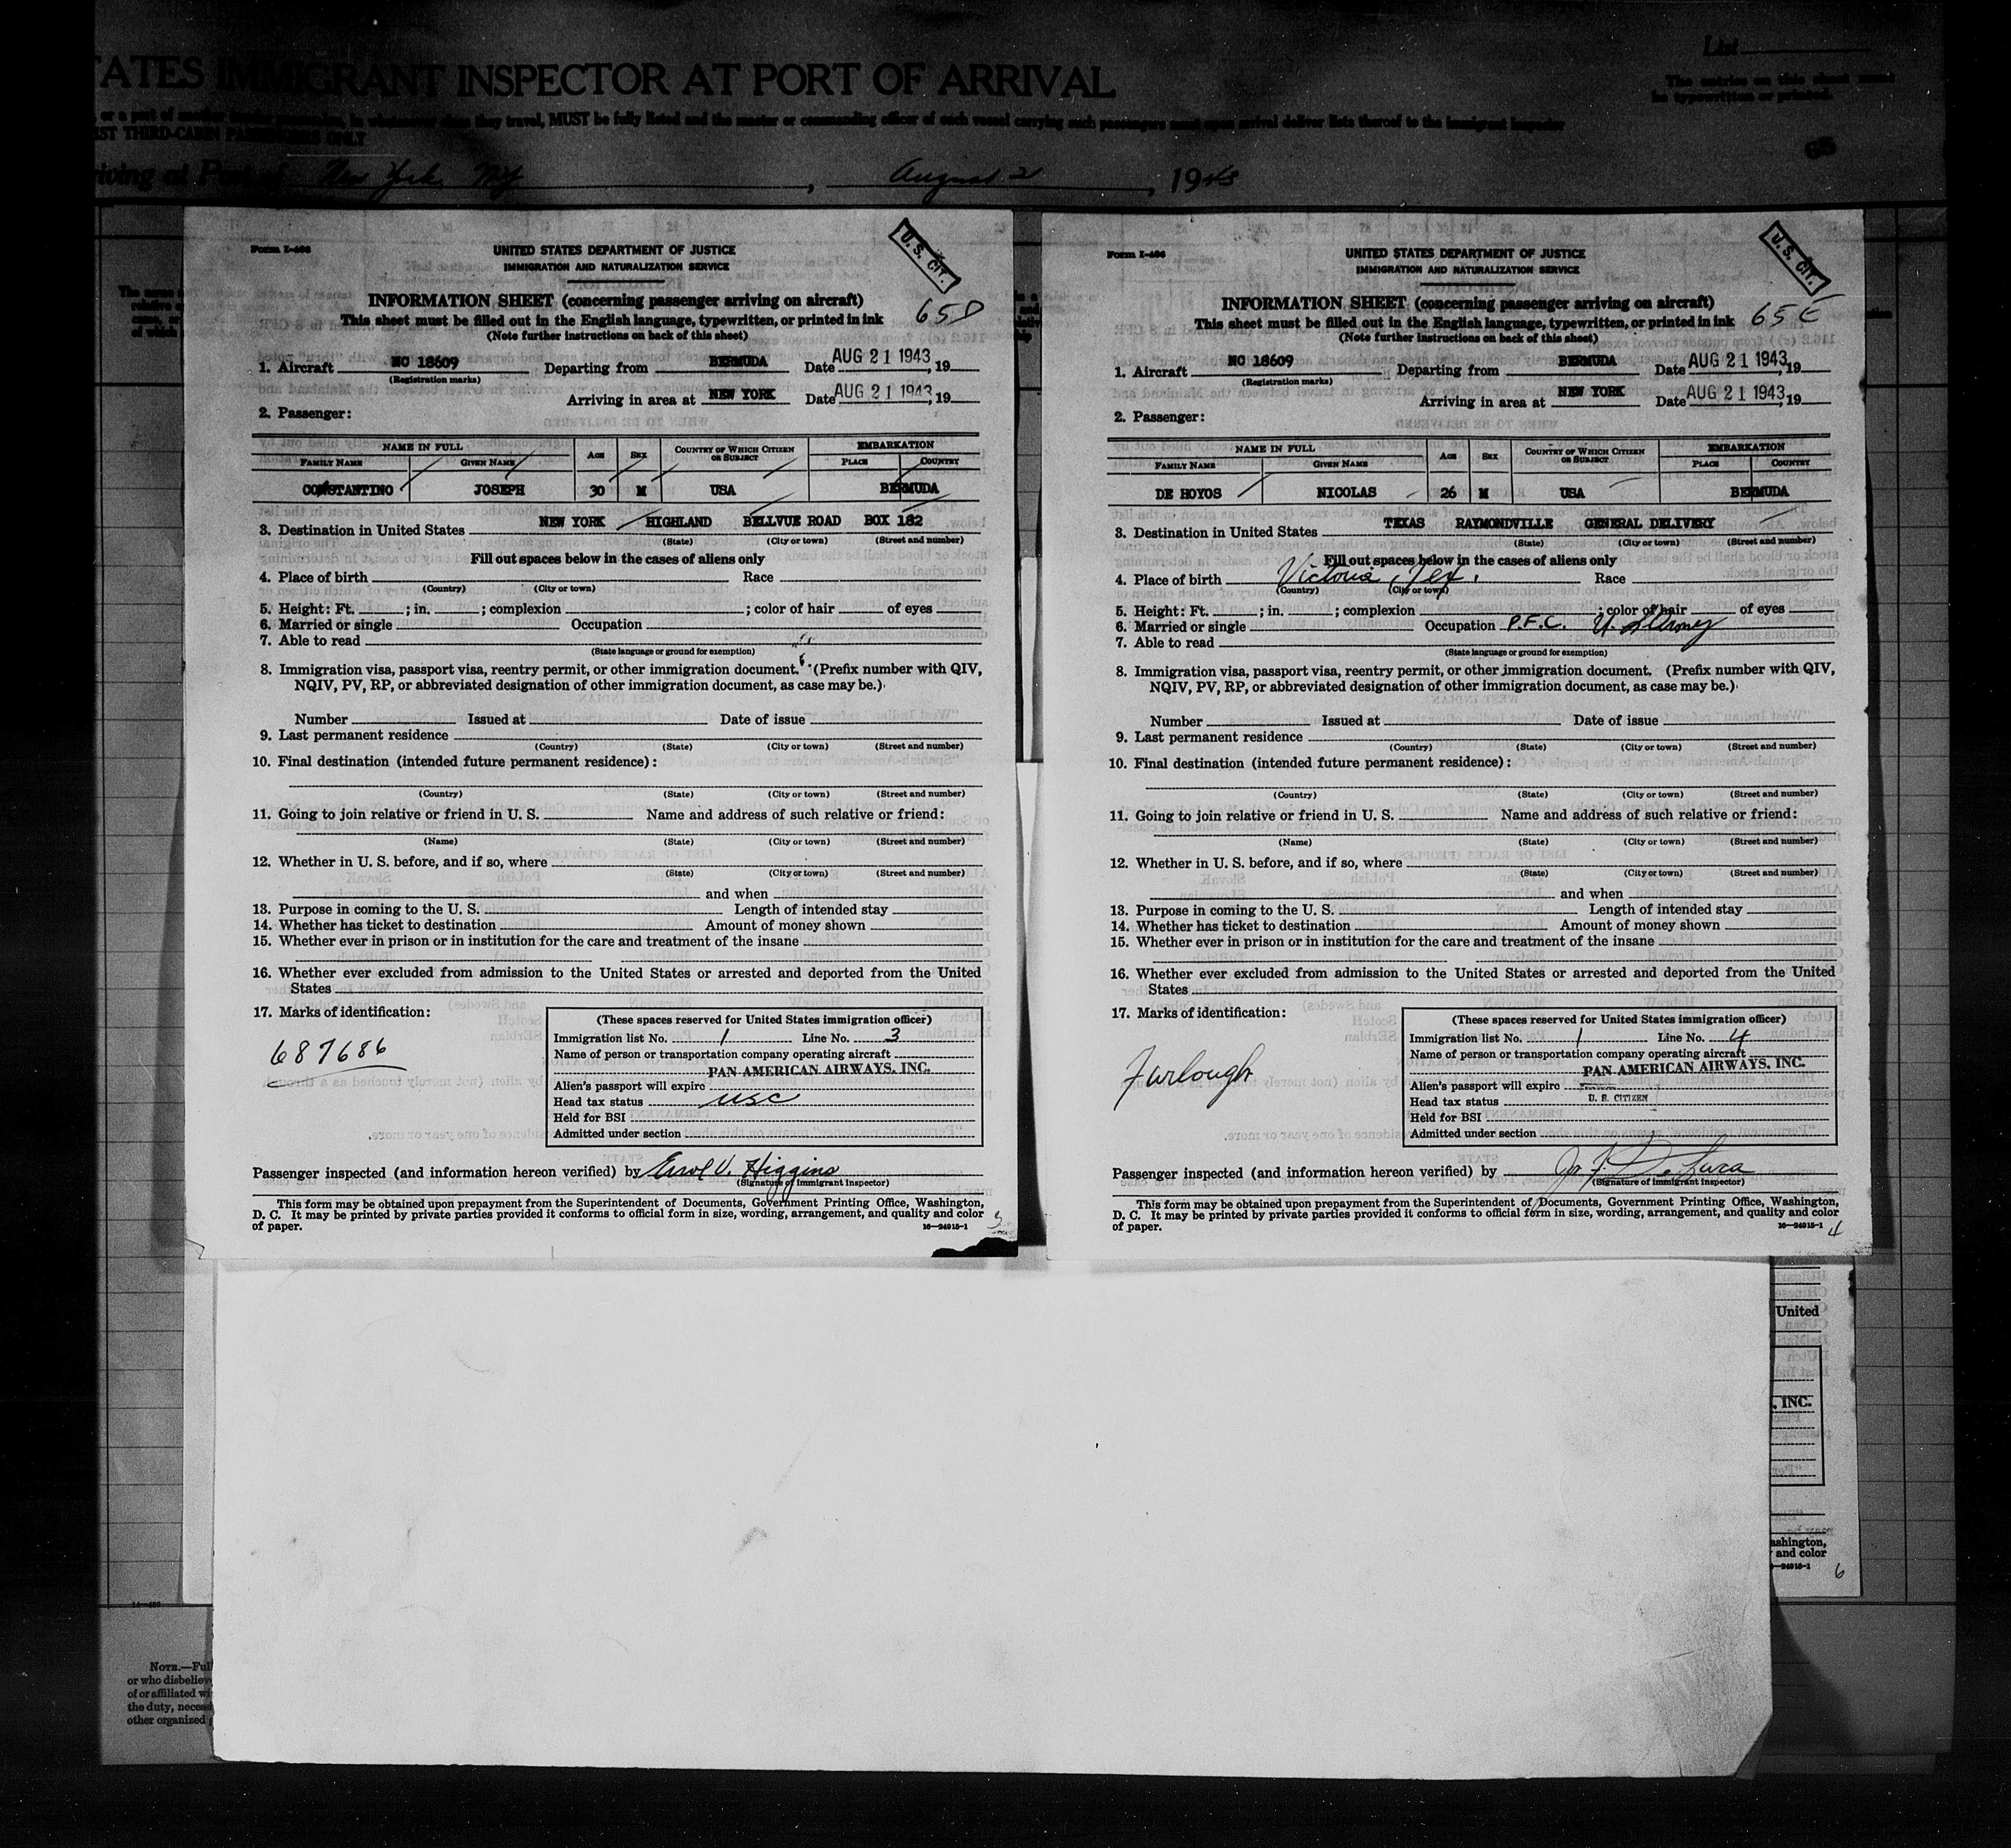 TATES IMMIGRANT INSPECTOR AT PORT OF ARRIVAL
List
The entries on this sheet must
be typewritten or printed.
, or a part of another insular possession, in whatsoever class they travel, MUST be fully listed and the master or commanding officer of each vessel carrying such passengers must upon arrival deliver lists thereof to the immigrant inspector
IST THIRD-CABIN PASSENGERS ONLY
65
riving at Port of New York, NY, August 2, 1943
Form I-466
U. S. CIT.
UNITED STATES DEPARTMENT OF JUSTICE
IMMIGRATION AND NATURALIZATION SERVICE
INFORMATION SHEET (concerning passenger arriving on aircraft)
65D
This sheet must be filled out in the English language, typewritten, or printed in ink
(Note further instructions on back of this sheet)
1. Aircraft NC 18609 Departing from BERMUDA Date AUG 21 1943, 19
(Registration marks)
Arriving in area at NEW YORK Date AUG 21 1943, 19
2. Passenger:
NAME IN FULL AGE SEX COUNTRY OF WHICH CITIZEN OR SUBJECT EMBARKATION
FAMILY NAME GIVEN NAME PLACE COUNTRY
CONSTANTINO JOSEPH 30 M USA BERMUDA
3. Destination in United States NEW YORK HIGHLAND BELLVUE ROAD BOX 182
(State) (City or town) (Street and number)
Fill out spaces below in the cases of aliens only
4. Place of birth Race
(Country) (City or town)
5. Height: Ft. ; in. ; complexion ; color of hair of eyes
6. Married or single Occupation
7. Able to read
(State language or ground for exemption)
8. Immigration visa, passport visa, reentry permit, or other immigration document. (Prefix number with QIV,
NQIV, PV, RP, or abbreviated designation of other immigration document, as case may be.)
Number Issued at Date of issue
9. Last permanent residence
(Country) (State) (City or town) (Street and number)
10. Final destination (intended future permanent residence):
(Country) (State) (City or town) (Street and number)
11. Going to join relative or friend in U. S. Name and address of such relative or friend:
(Name) (State) (City or town) (Street and number)
12. Whether in U. S. before, and if so, where
(State) (City or town) (Street and number)
and when
13. Purpose in coming to the U. S. Length of intended stay
14. Whether has ticket to destination Amount of money shown
15. Whether ever in prison or in institution for the care and treatment of the insane
16. Whether ever excluded from admission to the United States or arrested and deported from the United
States
17. Marks of identification:
687686
(These spaces reserved for United States immigration officer)
Immigration list No. 1 Line No. 3
Name of person or transportation company operating aircraft
PAN AMERICAN AIRWAYS, INC.
Alien's passport will expire
Head tax status USC
Held for BSI
Admitted under section
Passenger inspected (and information hereon verified) by Errol V. Higgins
(Signature of immigrant inspector)
This form may be obtained upon prepayment from the Superintendent of Documents, Government Printing Office, Washington,
D. C. It may be printed by private parties provided it conforms to official form in size, wording, arrangement, and quality and color
of paper.
16—24915-1
3
Form I-466
U. S. CIT.
UNITED STATES DEPARTMENT OF JUSTICE
IMMIGRATION AND NATURALIZATION SERVICE
INFORMATION SHEET (concerning passenger arriving on aircraft)
65E
This sheet must be filled out in the English language, typewritten, or printed in ink
(Note further instructions on back of this sheet)
1. Aircraft NC 18609 Departing from BERMUDA Date AUG 21 1943, 19
(Registration marks)
Arriving in area at NEW YORK Date AUG 21 1943, 19
2. Passenger:
NAME IN FULL AGE SEX COUNTRY OF WHICH CITIZEN OR SUBJECT EMBARKATION
FAMILY NAME GIVEN NAME PLACE COUNTRY
DE HOYOS NICOLAS 26 M USA BERMUDA
3. Destination in United States TEXAS RAYMONDVILLE GENERAL DELIVERY
(State) (City or town) (Street and number)
Fill out spaces below in the cases of aliens only
4. Place of birth Victoria, Tex. Race
(Country) (City or town)
5. Height: Ft. ; in. ; complexion ; color of hair of eyes
6. Married or single Occupation P.F.C. U.S. Army
7. Able to read
(State language or ground for exemption)
8. Immigration visa, passport visa, reentry permit, or other immigration document. (Prefix number with QIV,
NQIV, PV, RP, or abbreviated designation of other immigration document, as case may be.)
Number Issued at Date of issue
9. Last permanent residence
(Country) (State) (City or town) (Street and number)
10. Final destination (intended future permanent residence):
(Country) (State) (City or town) (Street and number)
11. Going to join relative or friend in U. S. Name and address of such relative or friend:
(Name) (State) (City or town) (Street and number)
12. Whether in U. S. before, and if so, where
(State) (City or town) (Street and number)
and when
13. Purpose in coming to the U. S. Length of intended stay
14. Whether has ticket to destination Amount of money shown
15. Whether ever in prison or in institution for the care and treatment of the insane
16. Whether ever excluded from admission to the United States or arrested and deported from the United
States
17. Marks of identification:
Furlough
(These spaces reserved for United States immigration officer)
Immigration list No. 1 Line No. 4
Name of person or transportation company operating aircraft
PAN AMERICAN AIRWAYS, INC.
Alien's passport will expire
Head tax status U. S. CITIZEN
Held for BSI
Admitted under section
Passenger inspected (and information hereon verified) by
(Signature of immigrant inspector)
This form may be obtained upon prepayment from the Superintendent of Documents, Government Printing Office, Washington,
D. C. It may be printed by private parties provided it conforms to official form in size, wording, arrangement, and quality and color
of paper.
16—24915-1
4
United
, INC.
ashington,
and color
—24915-1
6
NOTE.—Full
or who disbeliev
of or affiliated wi
the duty, necess
other organized